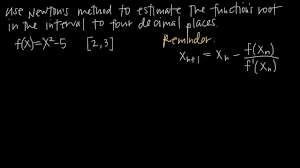 use Newton's method to estimate the function's root
in the interval to four decimal places.
f(x)=x²-5 [2,3]
Reminder:
xₙ₊₁ = xₙ - f(xₙ)/f'(xₙ)